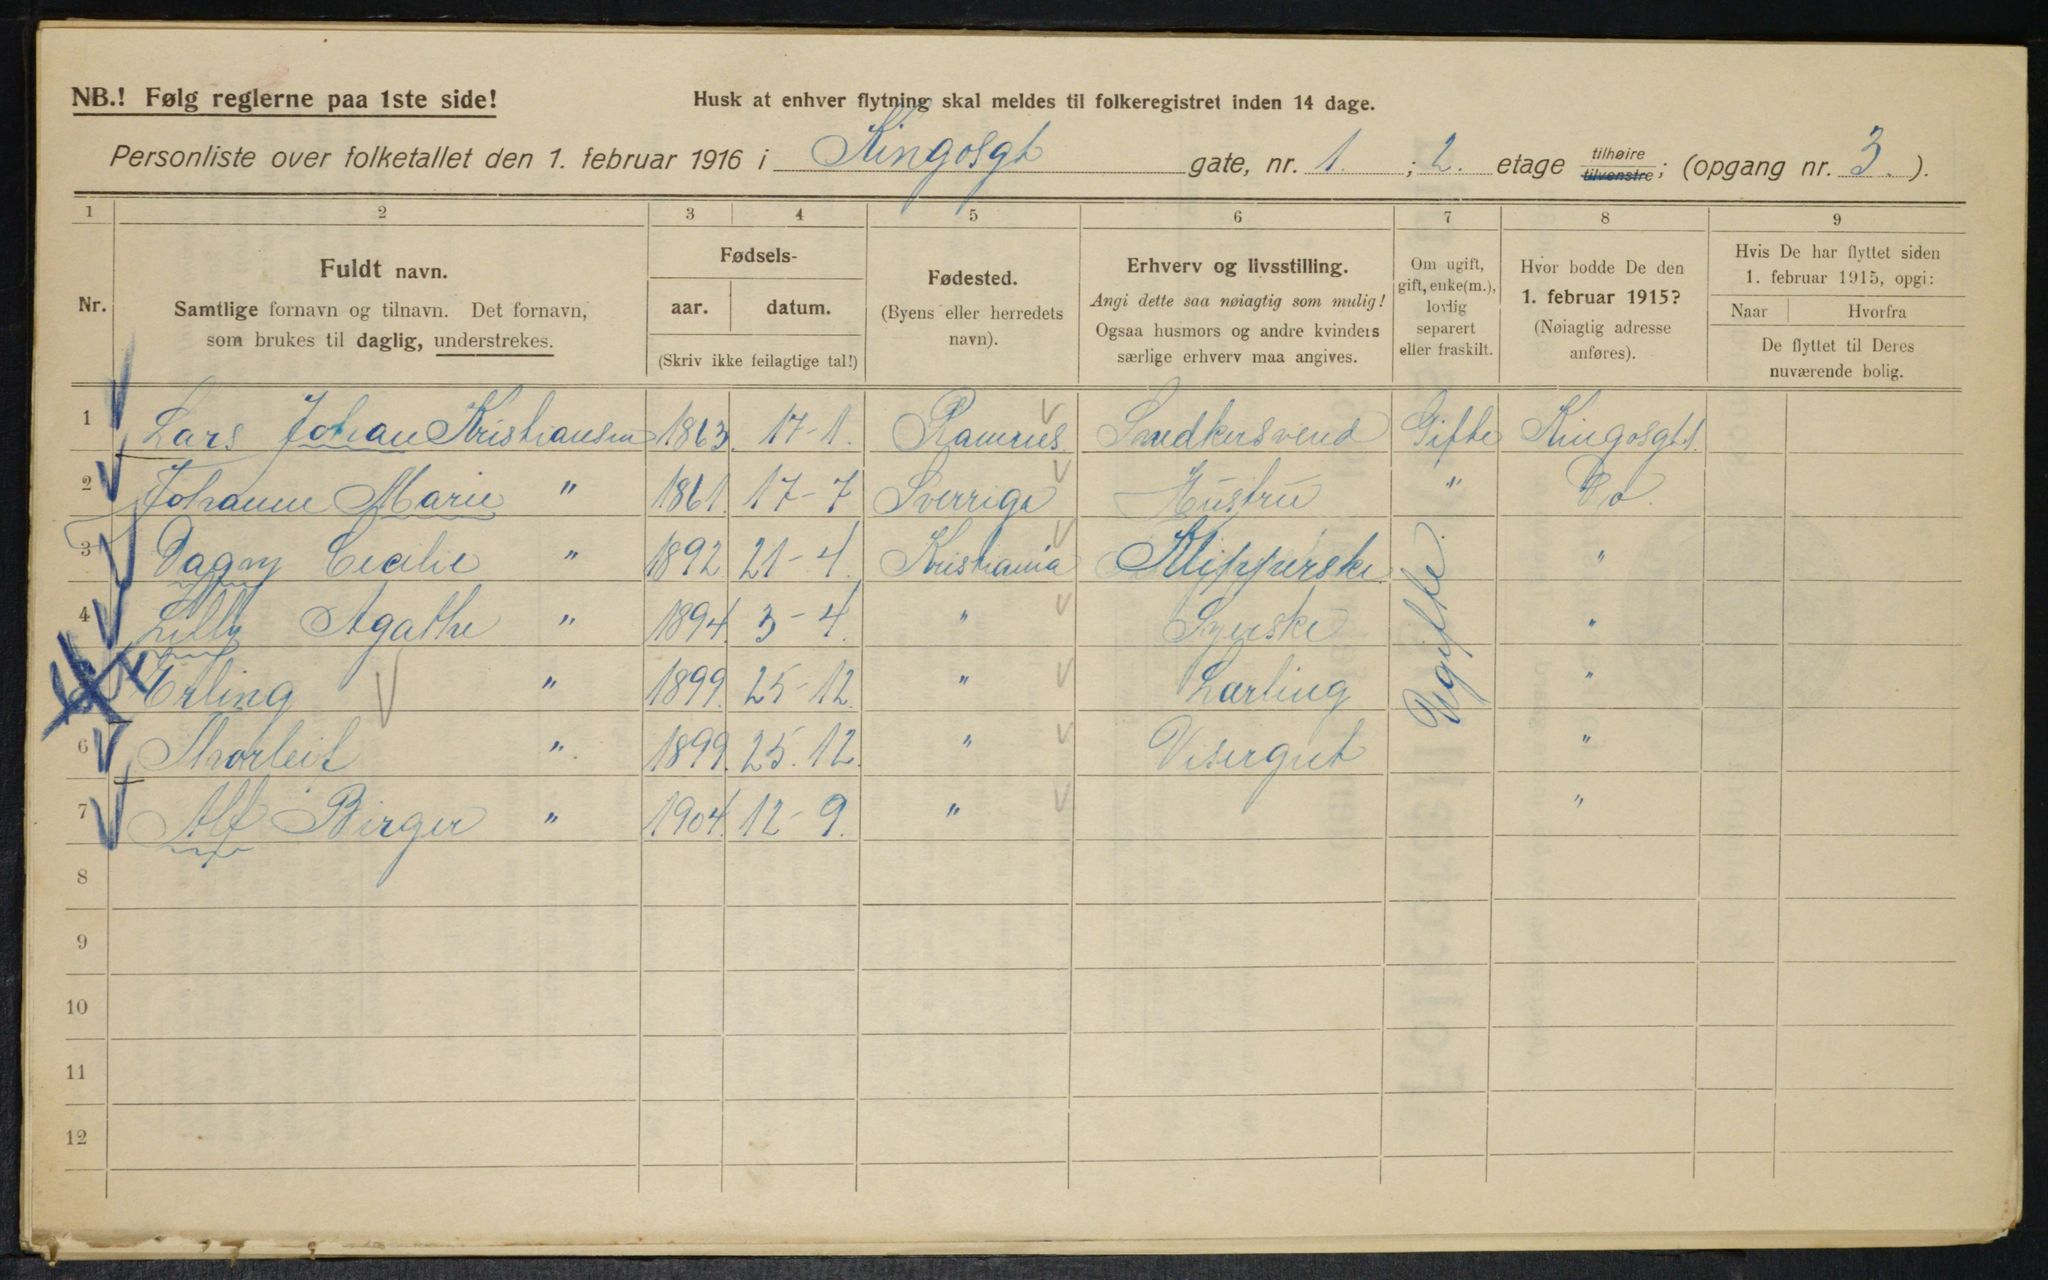 NB.! Følg reglerne paa 1ste side!
Husk at enhver flytning skal meldes til folkeregistret inden 14 dage.
Personliste over folketallet den 1. februar 1916 i Kingosgt gate, nr. 1. ; 2. etage tilhøire tilvenstre; (opgang nr. 3. ).
1 2 3 4 5 6 7 8 9
Nr.
Fuldt navn.
Samtlige fornavn og tilnavn. Det fornavn,
som brukes til daglig, understrekes.
Fødsels-
aar. datum.
(Skriv ikke feilagtige tal!)
Fødested.
(Byens eller herredets
navn).
Erhverv og livsstilling.
Angi dette saa nøiagtig som mulig!
Ogsaa husmors og andre kvinders
særlige erhverv maa angives.
Om ugift,
gift, enke(m.),
lovlig
separert
eller fraskilt.
Hvor bodde De den
1. februar 1915?
(Nøiagtig adresse
anføres).
Hvis De har flyttet siden
1. februar 1915, opgi:
Naar Hvorfra
De flyttet til Deres
nuværende bolig.
1 Lars Johan Kristiansen 1863. 17-1. Ramnes Snedkersvend Gifte Kingosgt 1.
2 Johanne Marie " 1861. 17-7 Sverrige Hustru " Do.
3 Dagny Cecilie " 1892 21-4. Kristiania Klipperske. Ugifte. "
4 Lilly Agathe " 1894. 3-4. " Syerske "
Erling " 1899. 25-12. " Lærling "
6 Thorleif ". 1899. 25.12. " Visergut "
7 Alf Birger " 1904. 12-9. " "
8
9
10
11
12